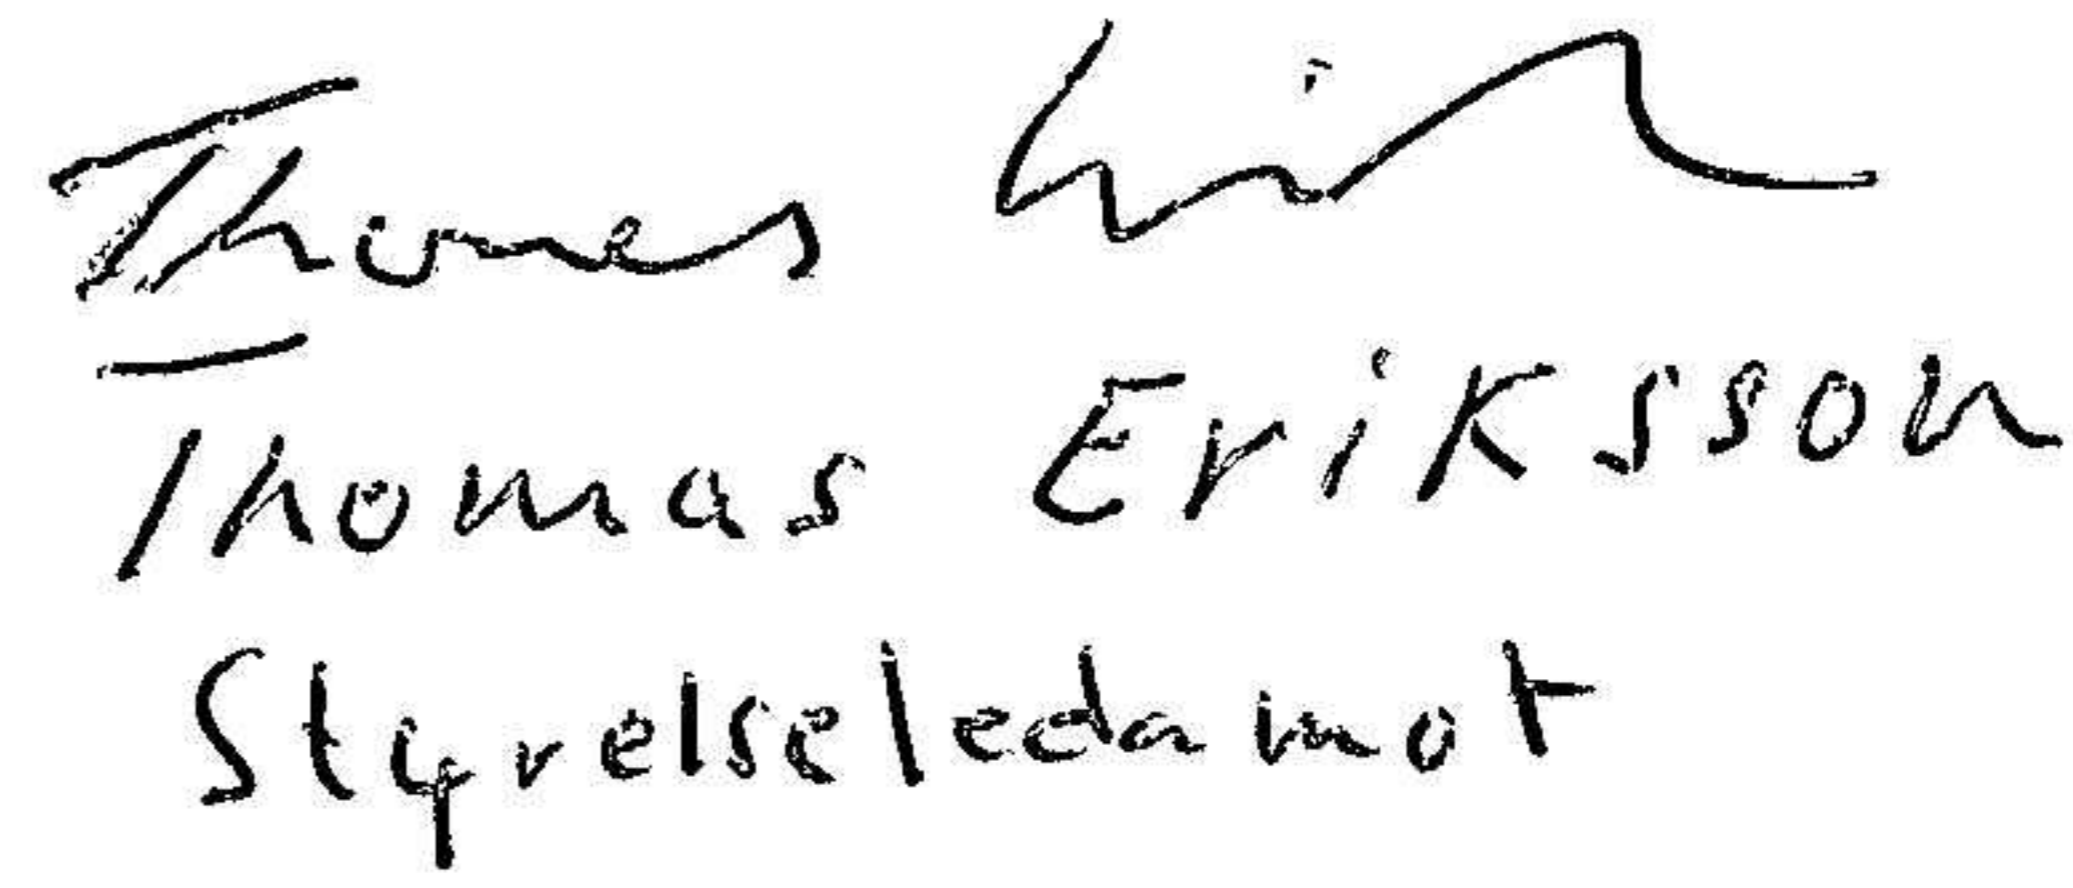 Thomas
Thomas Eriksson
Styrelseledamot